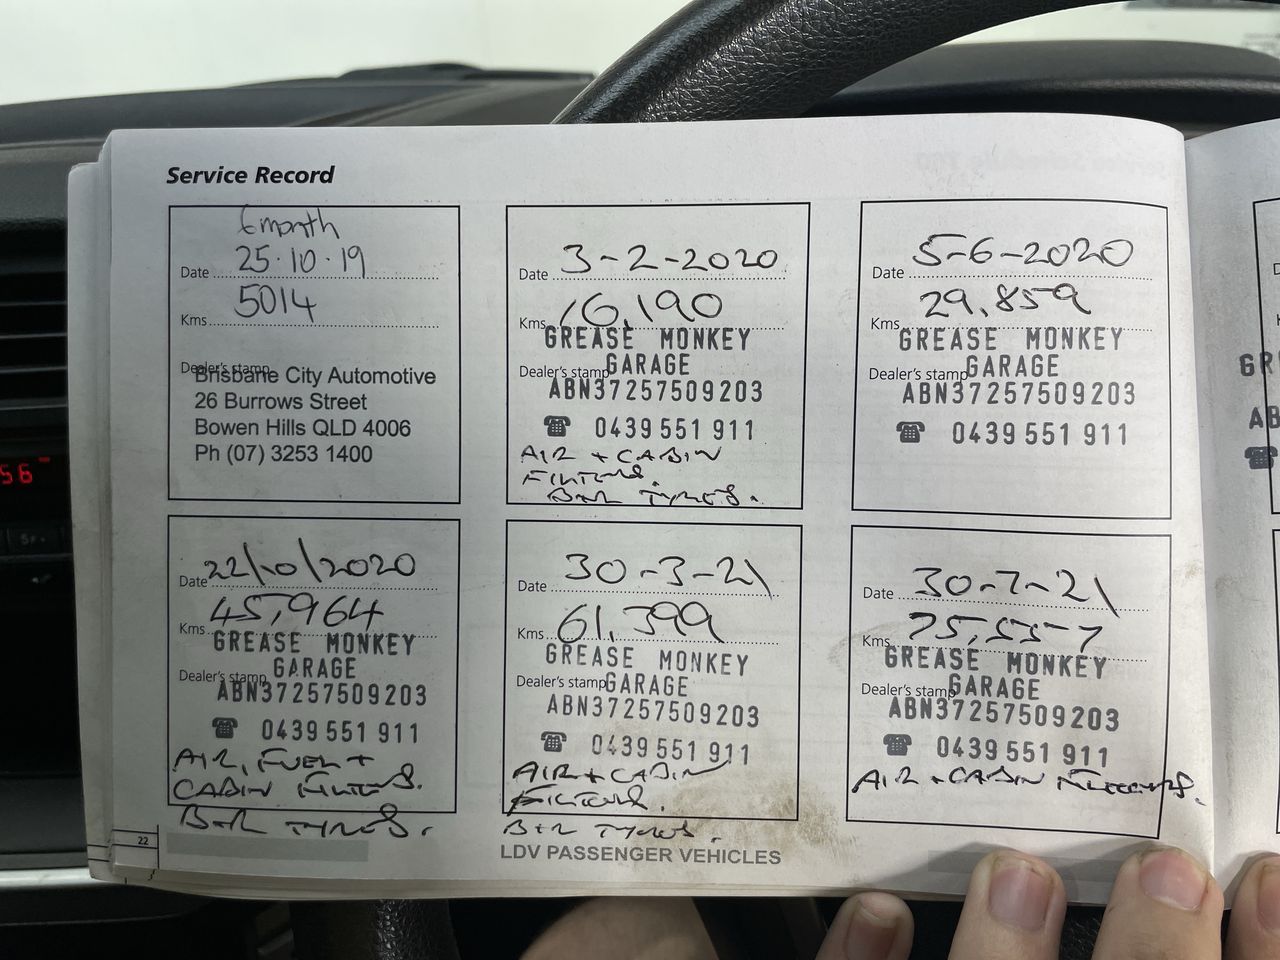 Service Record
6 month
Date 25.10.19
Kms 5014
Dealer's stamp
Brisbane City Automotive
26 Burrows Street
Bowen Hills QLD 4006
Ph (07) 3253 1400
Date 3-2-2020
Kms 16,190
GREASE MONKEY
GARAGE
Dealer's stamp
ABN37257509203
☎ 0439 551 911
AIR + CABIN
FILTERS.
B+R TYRES.
Date 5-6-2020
Kms 29,859
GREASE MONKEY
GARAGE
Dealer's stamp
ABN37257509203
☎ 0439 551 911
Date 22/10/2020
Kms 45,964
GREASE MONKEY
GARAGE
Dealer's stamp
ABN37257509203
☎ 0439 551 911
AIR, FUEL +
CABIN FILTERS.
B+R TYRES.
Date 30-3-21
Kms 61,399
GREASE MONKEY
Dealer's stamp GARAGE
ABN37257509203
☎ 0439 551 911
AIR + CABIN
FILTERS.
B+R TYRES.
Date 30-7-21
Kms 75,557
GREASE MONKEY
Dealer's stamp GARAGE
ABN37257509203
☎ 0439 551 911
AIR + CABIN FILTERS.
22
LDV PASSENGER VEHICLES
GR
AB
☎
56